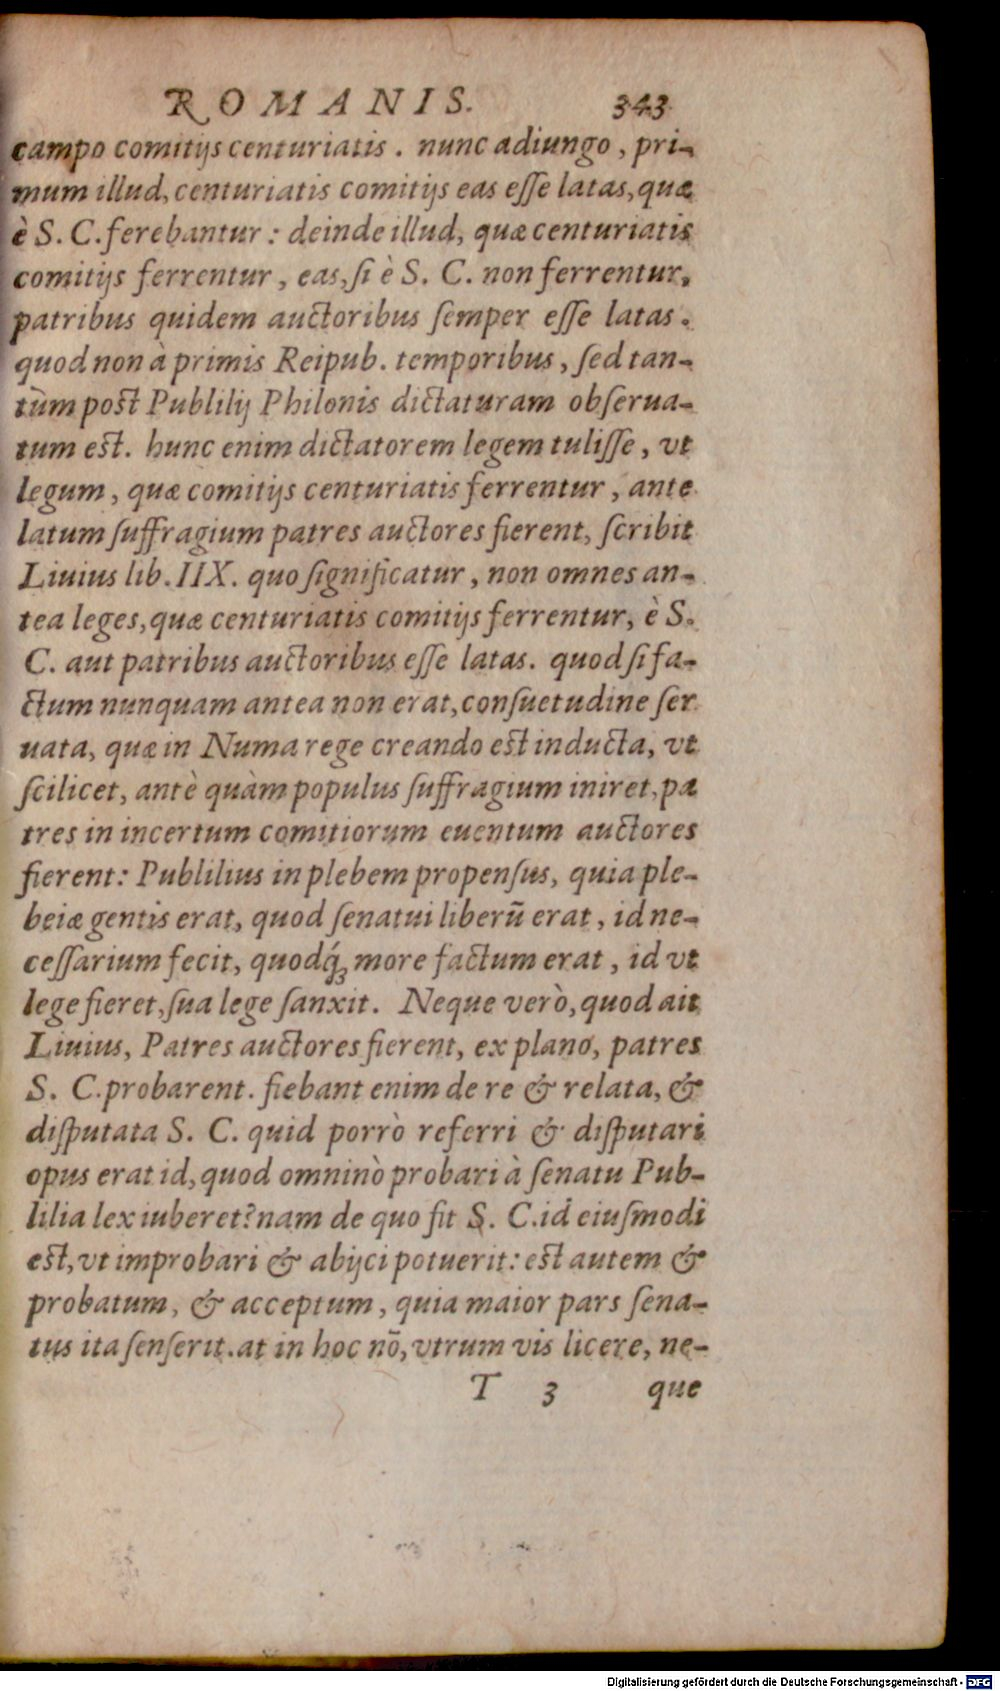 ROMANIS. 343
campo comitijs centuriatis. nunc adiungo, pri-
mum illud, centuriatis comitijs eas esse latas, quæ
è S. C. ferebantur: deinde illud, quæ centuriatis
comitijs ferrentur, eas, si è S. C. non ferrentur,
patribus quidem auctoribus semper esse latas.
quod non à primis Reipub. temporibus, sed tan-
tùm post Publilij Philonis dictaturam obserua-
tum est. hunc enim dictatorem legem tulisse, vt
legum, quæ comitijs centuriatis ferrentur, ante
latum suffragium patres auctores fierent, scribit
Liuius lib. IIX. quo significatur, non omnes an-
tea leges, quæ centuriatis comitijs ferrentur, è S.
C. aut patribus auctoribus esse latas. quod si fa-
ctum nunquam antea non erat, consuetudine ser
uata, quæ in Numa rege creando est inducta, vt
scilicet, antè quàm populus suffragium iniret, pa
tres in incertum comitiorum euentum auctores
fierent: Publilius in plebem propensus, quia ple-
beiæ gentis erat, quod senatui liberū erat, id ne-
cessarium fecit, quodq́; more factum erat, id vt
lege fieret, sua lege sanxit. Neque verò, quod ait
Liuius, Patres auctores fierent, ex plano, patres
S. C. probarent. fiebant enim de re & relata, &
disputata S. C. quid porrò referri & disputari
opus erat id, quod omninò probari à senatu Pub-
lilia lex iuberet? nam de quo fit S. C. id eiusmodi
est, vt improbari & abijci potuerit: est autem &
probatum, & acceptum, quia maior pars sena-
tus ita senserit. at in hoc nō, vtrum vis licere, ne-
T 3 que
Digitalisierung gefördert durch die Deutsche Forschungsgemeinschaft - DFG